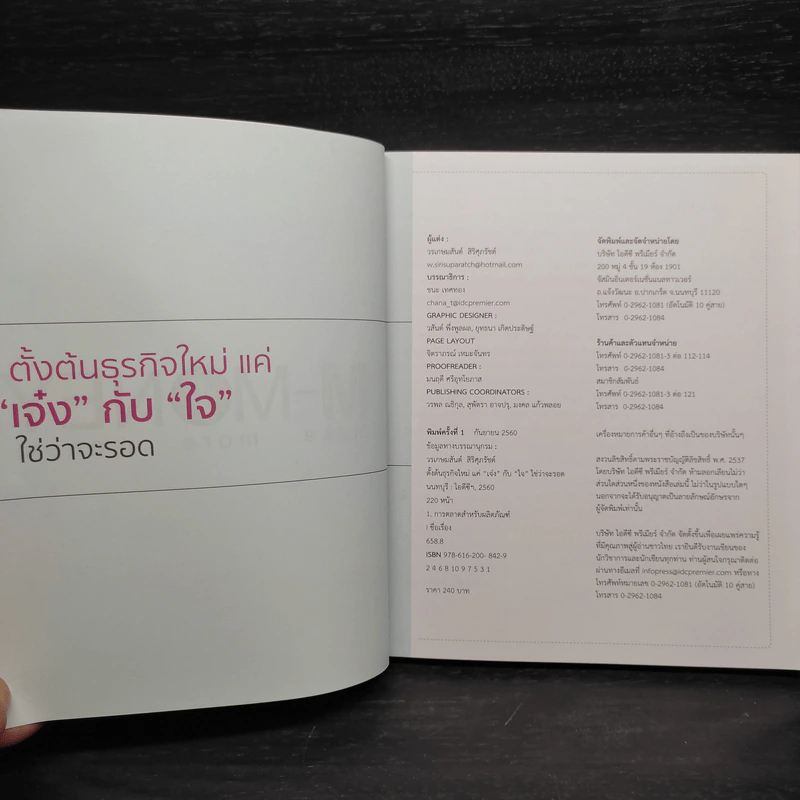 ตั้งต้นธุรกิจใหม่ แค่
“เจ๋ง” กับ “ใจ”
ใช่ว่าจะรอด
ผู้แต่ง :
วรเกษมสันต์ สิริศุภรัชต์
w.sirisuparatch@hotmail.com
บรรณาธิการ :
ชนะ เทศทอง
chana_t@idcpremier.com
GRAPHIC DESIGNER :
วสันต์ พึ่งพูลผล, ยุทธนา เกิดประดิษฐ์
PAGE LAYOUT
จิตราภรณ์ เหมะจันทร
PROOFREADER :
มนฤดี ศรีอุทโยภาส
PUBLISHING COORDINATORS :
วรพล ณธิกุล, สุพัตรา อาจปรุ, มงคล แก้วพลอย
พิมพ์ครั้งที่ 1 กันยายน 2560
ข้อมูลทางบรรณานุกรม :
วรเกษมสันต์ สิริศุภรัชต์
ตั้งต้นธุรกิจใหม่ แค่ “เจ๋ง” กับ “ใจ” ใช่ว่าจะรอด
นนทบุรี : ไอดีซีฯ, 2560
220 หน้า
1. การตลาดสำหรับผลิตภัณฑ์
I ชื่อเรื่อง
658.8
ISBN 978-616-200- 842-9
2 4 6 8 10 9 7 5 3 1
ราคา 240 บาท
จัดพิมพ์และจัดจำหน่ายโดย
บริษัท ไอดีซี พรีเมียร์ จำกัด
200 หมู่ 4 ชั้น 19 ห้อง 1901
จัสมินอินเตอร์เนชั่นแนลทาวเวอร์
ถ.แจ้งวัฒนะ อ.ปากเกร็ด จ.นนทบุรี 11120
โทรศัพท์ 0-2962-1081 (อัตโนมัติ 10 คู่สาย)
โทรสาร 0-2962-1084
ร้านค้าและตัวแทนจำหน่าย
โทรศัพท์ 0-2962-1081-3 ต่อ 112-114
สมาชิกสัมพันธ์
โทรศัพท์ 0-2962-1081-3 ต่อ 121
โทรสาร 0-2962-1084
เครื่องหมายการค้าอื่นๆ ที่อ้างถึงเป็นของบริษัทนั้นๆ
สงวนลิขสิทธิ์ตามพระราชบัญญัติลิขสิทธิ์ พ.ศ. 2537
โดยบริษัท ไอดีซี พรีเมียร์ จำกัด ห้ามลอกเลียนไม่ว่า
ส่วนใดส่วนหนึ่งของหนังสือเล่มนี้ ไม่ว่าในรูปแบบใดๆ
นอกจากจะได้รับอนุญาตเป็นลายลักษณ์อักษรจาก
ผู้จัดพิมพ์เท่านั้น
บริษัท ไอดีซี พรีเมียร์ จำกัด จัดตั้งขึ้นเพื่อเผยแพร่ความรู้
ที่มีคุณภาพสู่ผู้อ่านชาวไทย เรายินดีรับงานเขียนของ
นักวิชาการและนักเขียนทุกท่าน ท่านผู้สนใจกรุณาติดต่อ
ผ่านทางอีเมลที่ infopress@idcpremier.com หรือทาง
โทรศัพท์หมายเลข 0-2962-1081 (อัตโนมัติ 10 คู่สาย)
โทรสาร 0-2962-1084